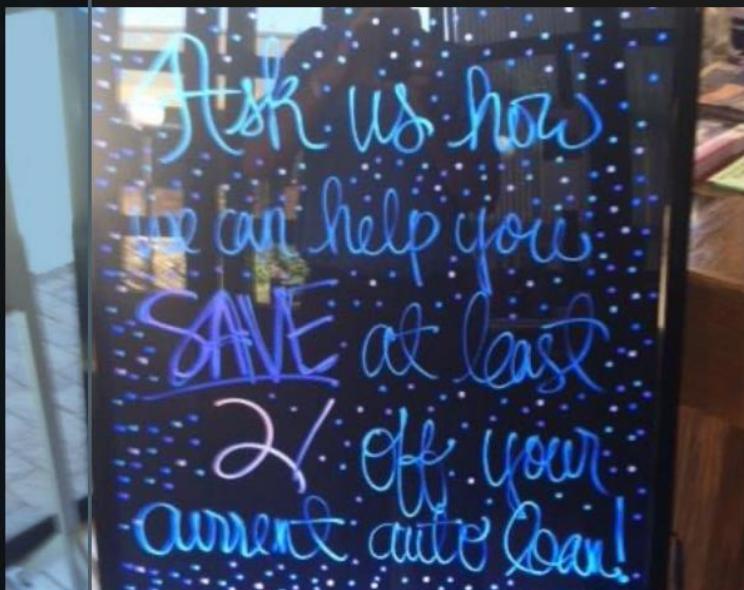 Ask us how
we can help you
SAVE at least
2% off your
current auto loan!